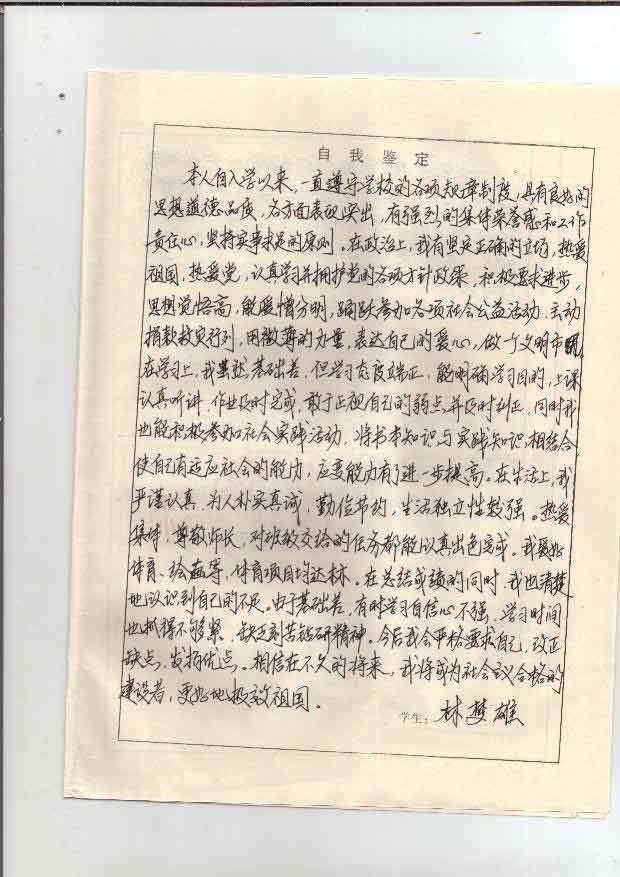 自我鉴定
本人自入学以来,一直遵守学校的各项规章制度,具有良好的
思想道德品质,各方面表现突出,有强烈的集体荣誉感和工作
责任心,坚持实事求是的原则。在政治上,我有坚实正确的立场,热爱
祖国,热爱党,认真学习并拥护党的各项方针政策,积极要求进步,
思想觉悟高,能爱憎分明,踊跃参加各项社会公益活动,主动
捐款救灾行列,用微薄的力量,表达自己的爱心,做个文明市民
在学习上,我虽然基础差,但学习态度端正,能明确学习目的,上课
认真听讲,作业及时完成,敢于正视自己的弱点并及时纠正,同时我
也能积极参加社会实践活动,将书本知识与实践知识相结合
使自己有适应社会的能力,应变能力有了进一步提高。在生活上,我
严谨认真,为人朴实真诚,勤俭节约,生活独立性较强。热爱
集体,尊敬师长,对班级交给的任务都能认真出色完成。我爱好
体育、绘画等,体育项目均达标。在总结成绩的同时,我也清楚
地认识到自己的不足。由于基础差,有时学习自信心不强,学习时间
也抓得不够紧,缺乏刻苦钻研精神。今后我会严格要求自己,改正
缺点,发扬优点。相信在不久的将来,我将成为社会主义合格的
建设者,更好地报效祖国。
学生:林梦雄